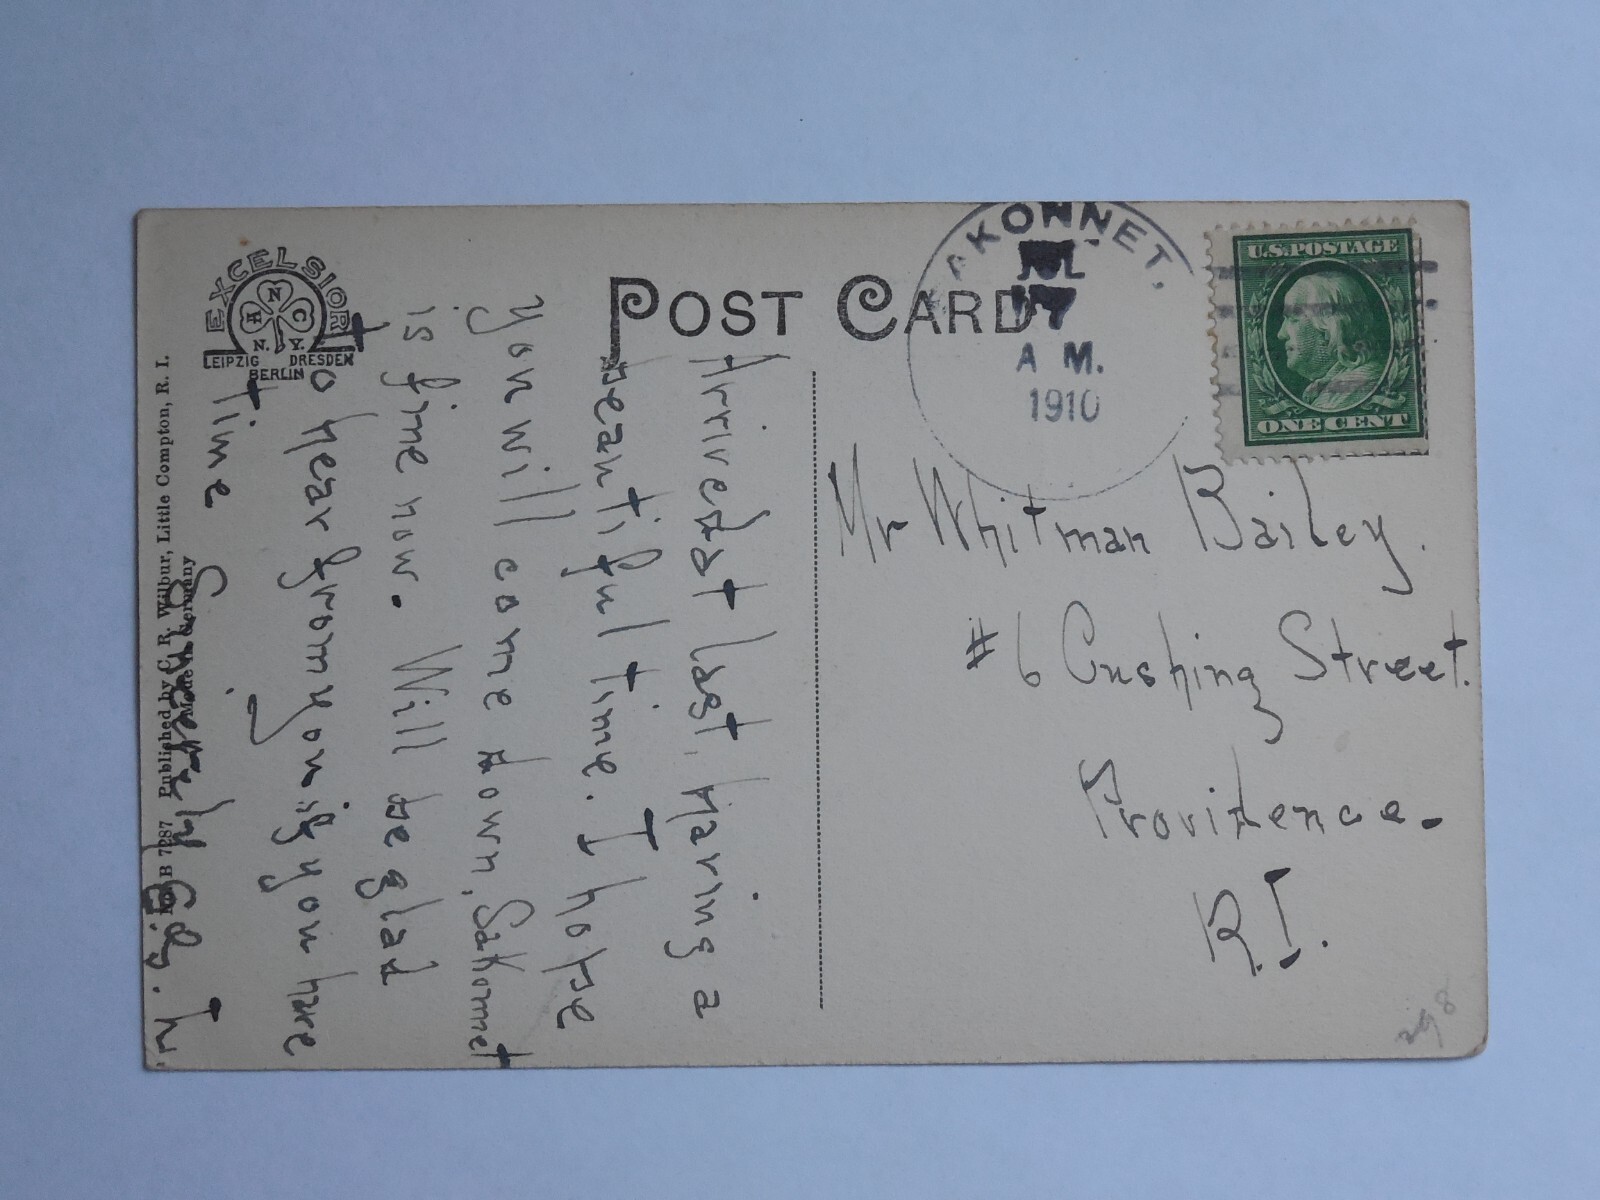 EXCELSIOR
A N C
N. Y.
LEIPZIG DRESDEN
BERLIN
POST CARD
AKONNET.
JUL
7
A M.
1910
U.S.POSTAGE
ONE CENT
Arrived at last, Having a
beautiful time. I hope
you will come down, Sakonnet
is fine now. Will be glad
to hear from you if you have
time.
Sincerely
Mr Whitman Bailey.
#6 Cushing Street.
Providence.
R.I.
298
No. B 7287 Published by C. R. Wilbur, Little Compton, R. I.
Made in Germany